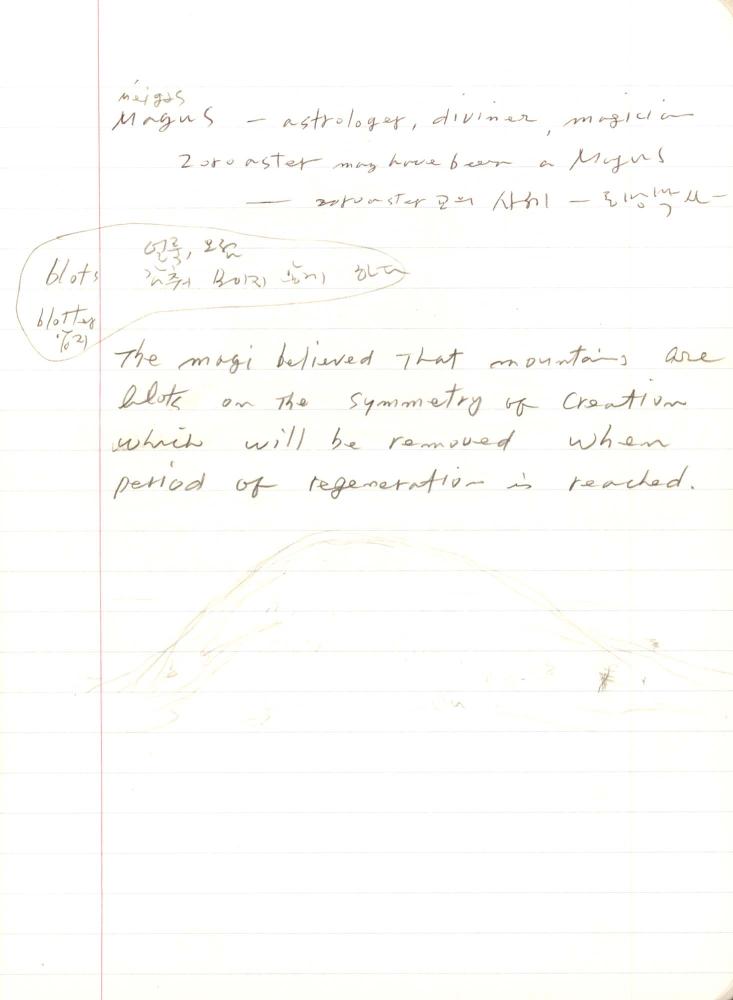 méigəs
Magus — astrologer, diviner, magician
Zoroaster may have been a Magus
— zoroaster 교의 사제 —
얼룩, 오점
blots 감춰 보이지 않게 하다
blotter
압지
The magi believed That mountains are
blots on The symmetry of Creation
which will be removed when
period of regeneration is reached.